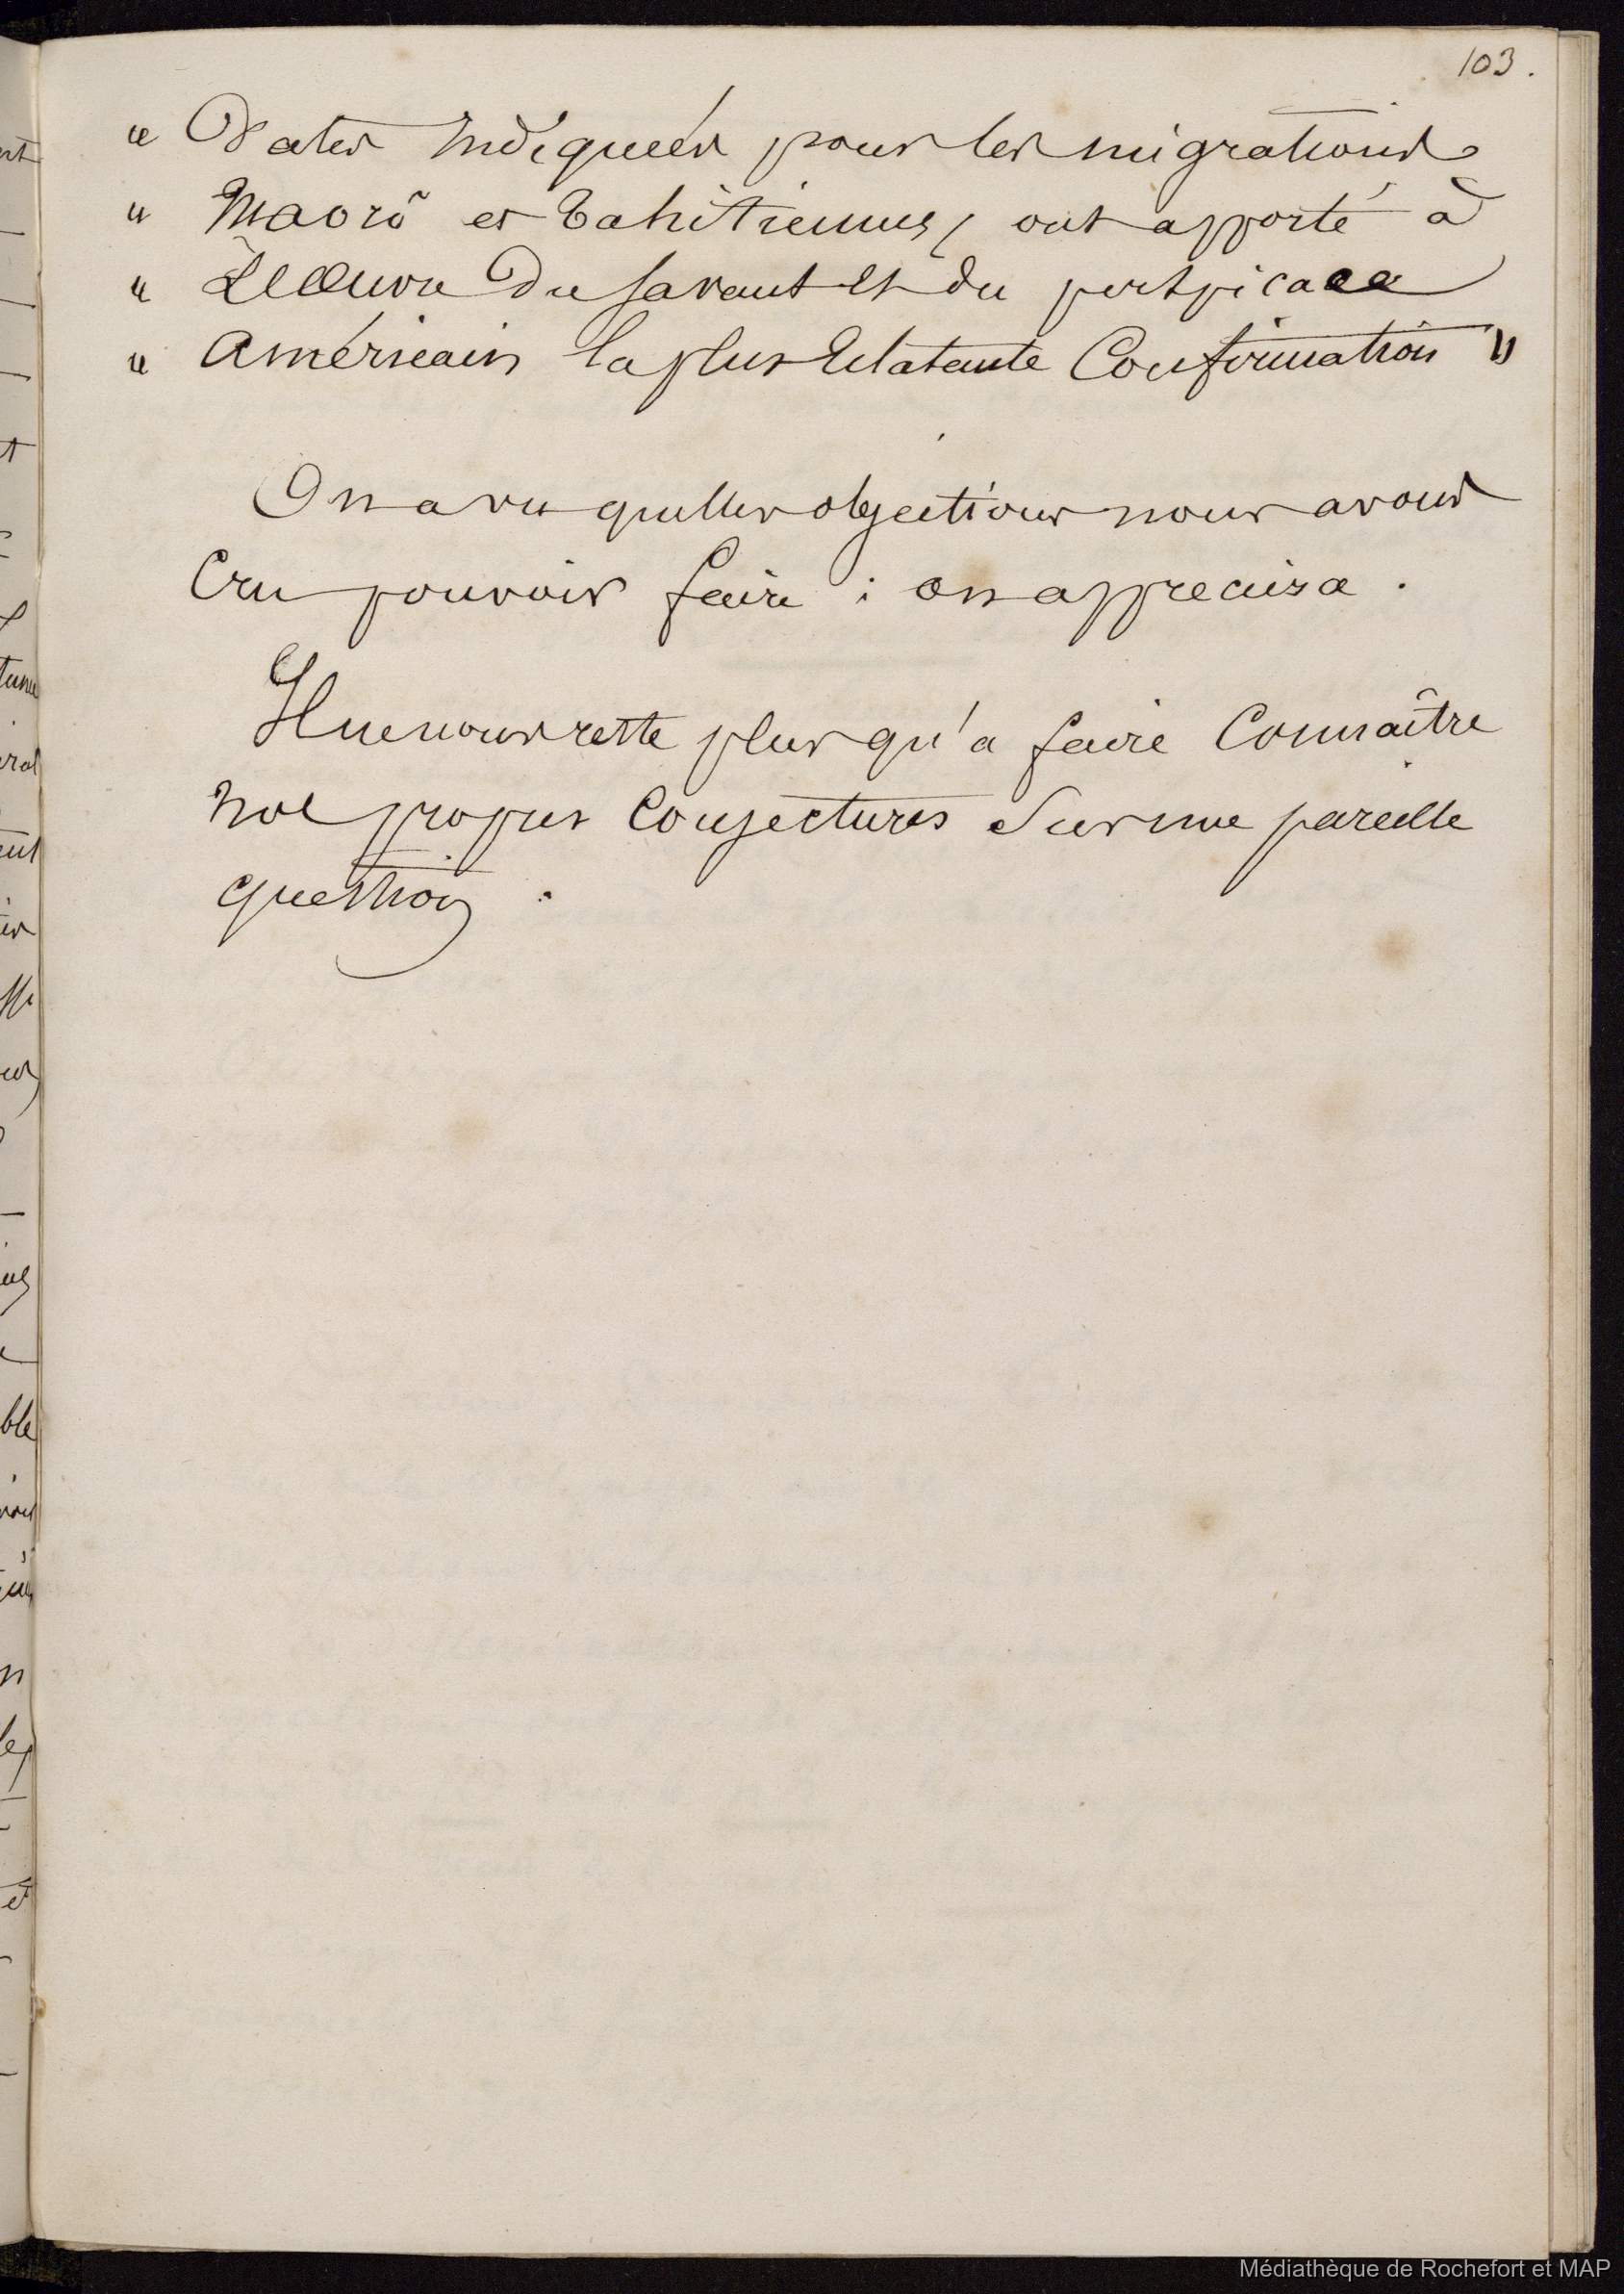 103.
" Dates indiquées pour les migrations
" Maori et Tahitiennes, ont apporté à
" L'Œuvre du savant et du perspicace
" Américain la plus Eclatante Confirmation "
On a vu quelles objections nous avons
Cru pouvoir faire : on appreciera .
Il ne nous reste plus qu'a faire Connaître
nos propres Conjectures Sur une pareille
question .
Médiathèque de Rochefort et MAP